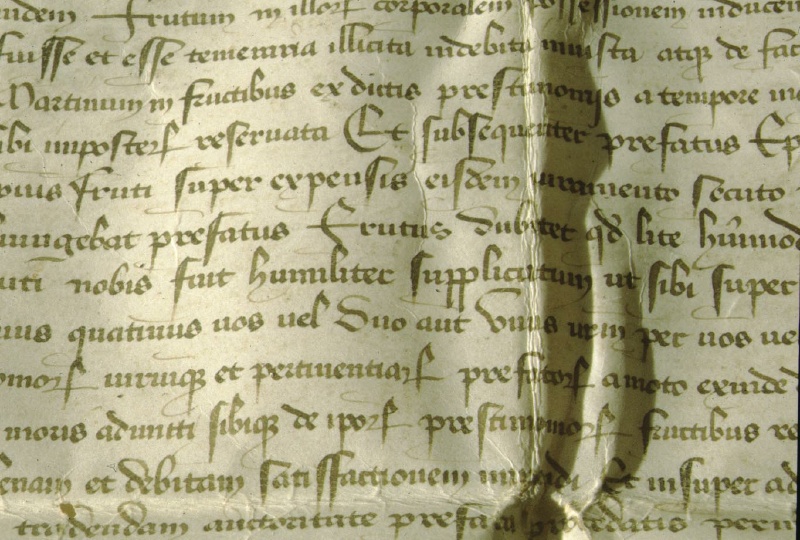 Frutum in illorum corporalem possessionem inducen
fuisse et esse temeraria illicita indebita iniusta atque de fac
Martinum in fructibus ex dictis prestimoniis a tempore
ibi imposterum reservata Et subsequenter prefatus Ep
Fruti super expensis eisdem iuramento secuto
iungebat prefatus Frutus dubitet qd lite
nobis fuit humiliter supplicatum ut sibi super
quatinus vos vel Duo aut Unus vrm per vos ve
iuriumque et pertinentiarum prefatorum amoto exinde
admitti sibique de ipsorum prestimoniorum fructibus re
et debitam satisfactionem impendi Et insuper ad
tradendam auctoritate prefata procedatis